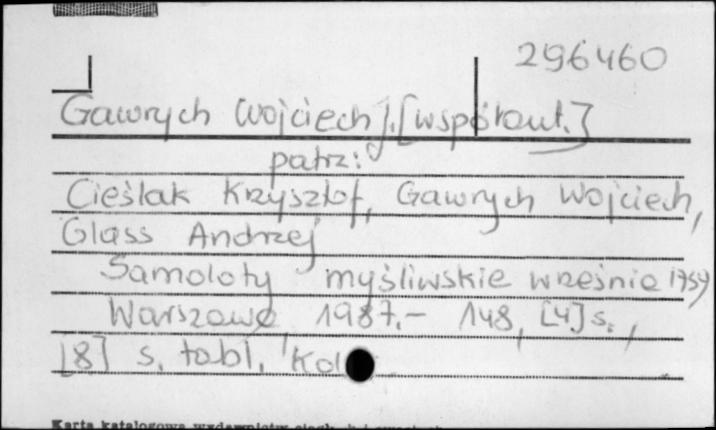 296460
Gawrych Wojciech J. [współaut.]
patrz:
Cieślak Krzysztof, Gawrych Wojciech,
Glass Andrzej
Samoloty myśliwskie września 1939
Warszawa, 1987.- 148, [4] s.,
[8] s. tabl. Kol
Karta katalogowa wydawnictw